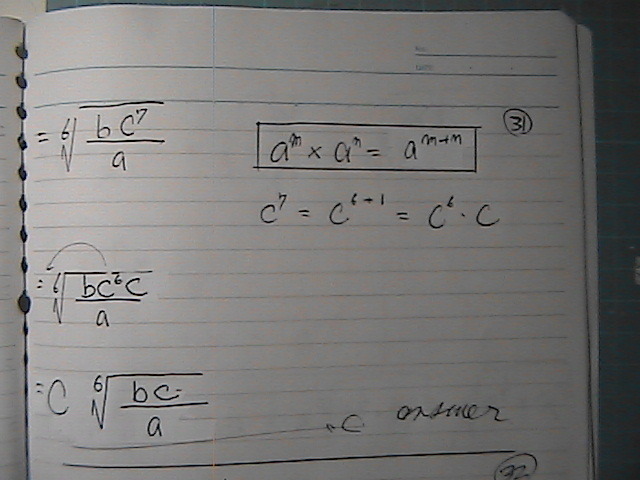 ㉛
= ⁶√(bc⁷/a)
aᵐ × aⁿ = aᵐ⁺ⁿ
c⁷ = c⁶⁺¹ = c⁶ · c
= ⁶√(bc⁶c/a)
= c ⁶√(bc/a)
answer
㉜